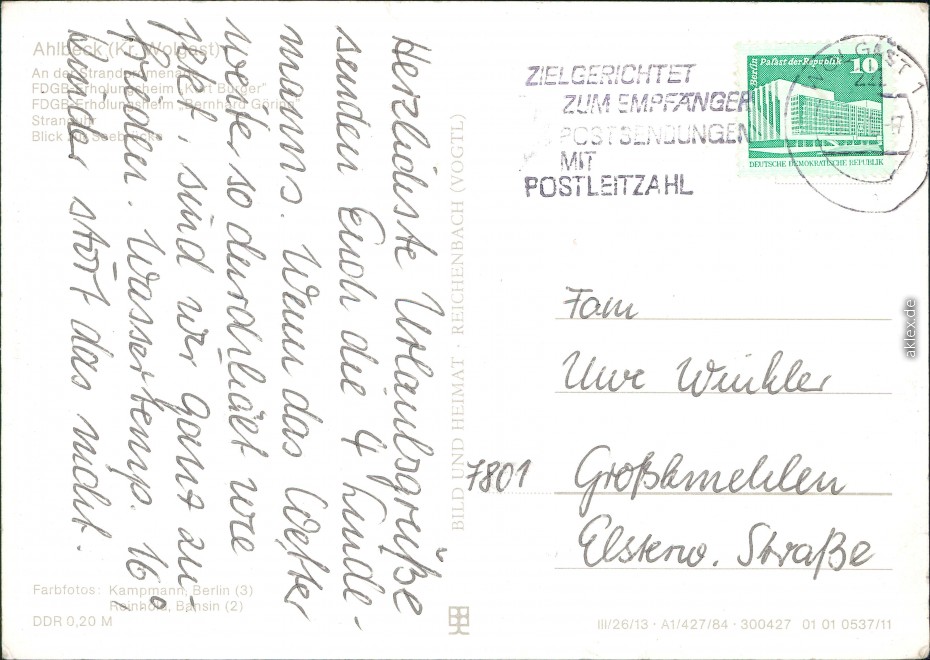 Ahlbeck (Kr. Wolgast)
An der Strandpromenade
FDGB-Erholungsheim „Kurt Bürger"
FDGB-Erholungsheim „Bernhard Göring"
Stranduhr
Blick zur Seebrücke
Herzlichste Urlaubsgrüße
senden Euch die 4 Linde-
manns. Wenn das Wetter
weiter so durchhält wie
jetzt, sind wir ganz zu-
frieden. Wassertemp. 16°,
Kinder stört das nicht.
Farbfotos: Kampmann, Berlin (3)
Reinhold, Bansin (2)
DDR 0,20 M
BILD UND HEIMAT · REICHENBACH (VOGTL)
ZIELGERICHTET
ZUM EMPFÄNGER
POSTSENDUNGEN
MIT
POSTLEITZAHL
Berlin Palast der Republik
10
DEUTSCHE DEMOKRATISCHE REPUBLIK
WOLGAST 1
222
Fam
Uwe Winkler
7801 Großkmehlen
Elsterw. Straße
III/26/13 · A1/427/84 · 300427 01 01 0537/11
aklex.de